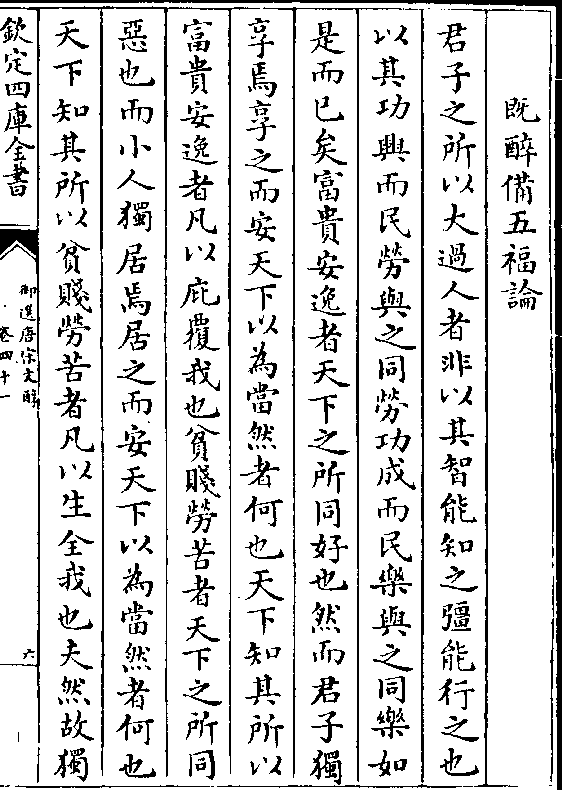 既醉備五福論
君子之所以大過人者非以其智能知之彊能行之也
以其功興而民勞與之同勞功成而民樂與之同樂如
是而已矣富貴安逸者天下之所同好也然而君子獨
享焉享之而安天下以為當然者何也天下知其所以
富貴安逸者凡以庇覆我也貧賤勞苦者天下之所同
惡也而小人獨居焉居之而安天下以為當然者何也
天下知其所以貧賤勞苦者凡以生全我也夫然故獨
欽定四庫全書
御選唐宋文醇
卷四十一
六